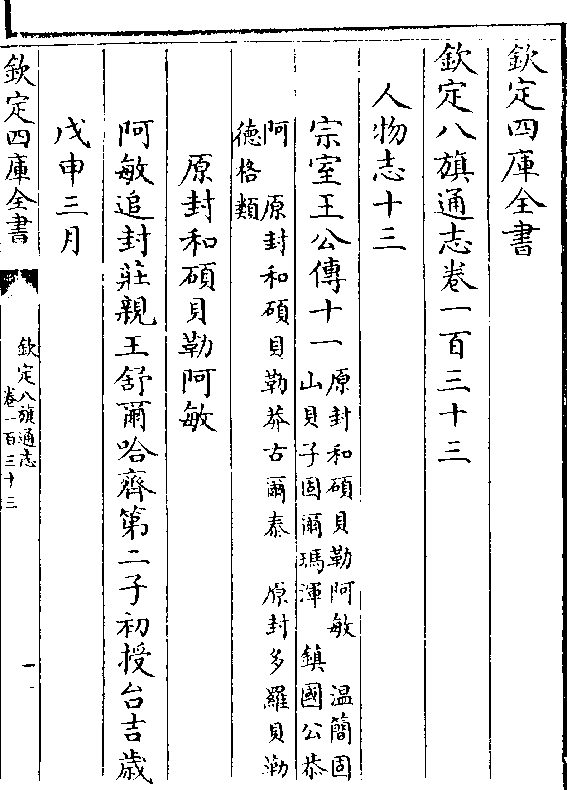 欽定四庫全書
欽定八旗通志卷一百三十三
人物志十三
宗室王公傳十一
原封和碩貝勒阿敏 溫簡固
山貝子固爾瑪渾 鎮國公恭
阿 原封和碩貝勒莽古爾泰 原封多羅貝勒
德格類
原封和碩貝勒阿敏
阿敏追封莊親王舒爾哈齊第二子初授台吉歲
戊申三月
欽定四庫全書
欽定八旗通志
卷一百三十三
一